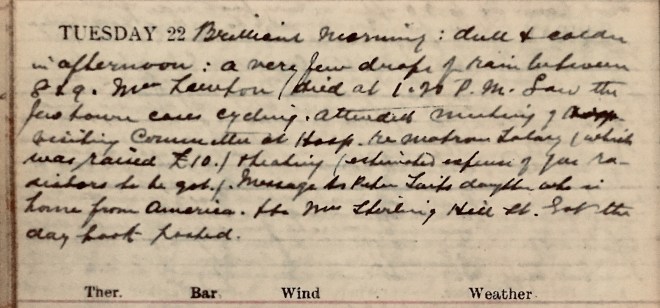 TUESDAY 22 Brilliant morning: dull & colder
in afternoon: a very few drops of rain between
8 & 9. Mrs died at 1.20 P.M. Saw the
few town cases cycling. Attended meeting of
visiting Committee at Hosp. re matron Salary (which
was raised £10.) & heating (estimated expense of gas ra-
diators to be got.). Message to Peter daughter who is
home from America. Mrs Stirling Hill St. Got the
day book posted.
Ther. Bar Wind Weather